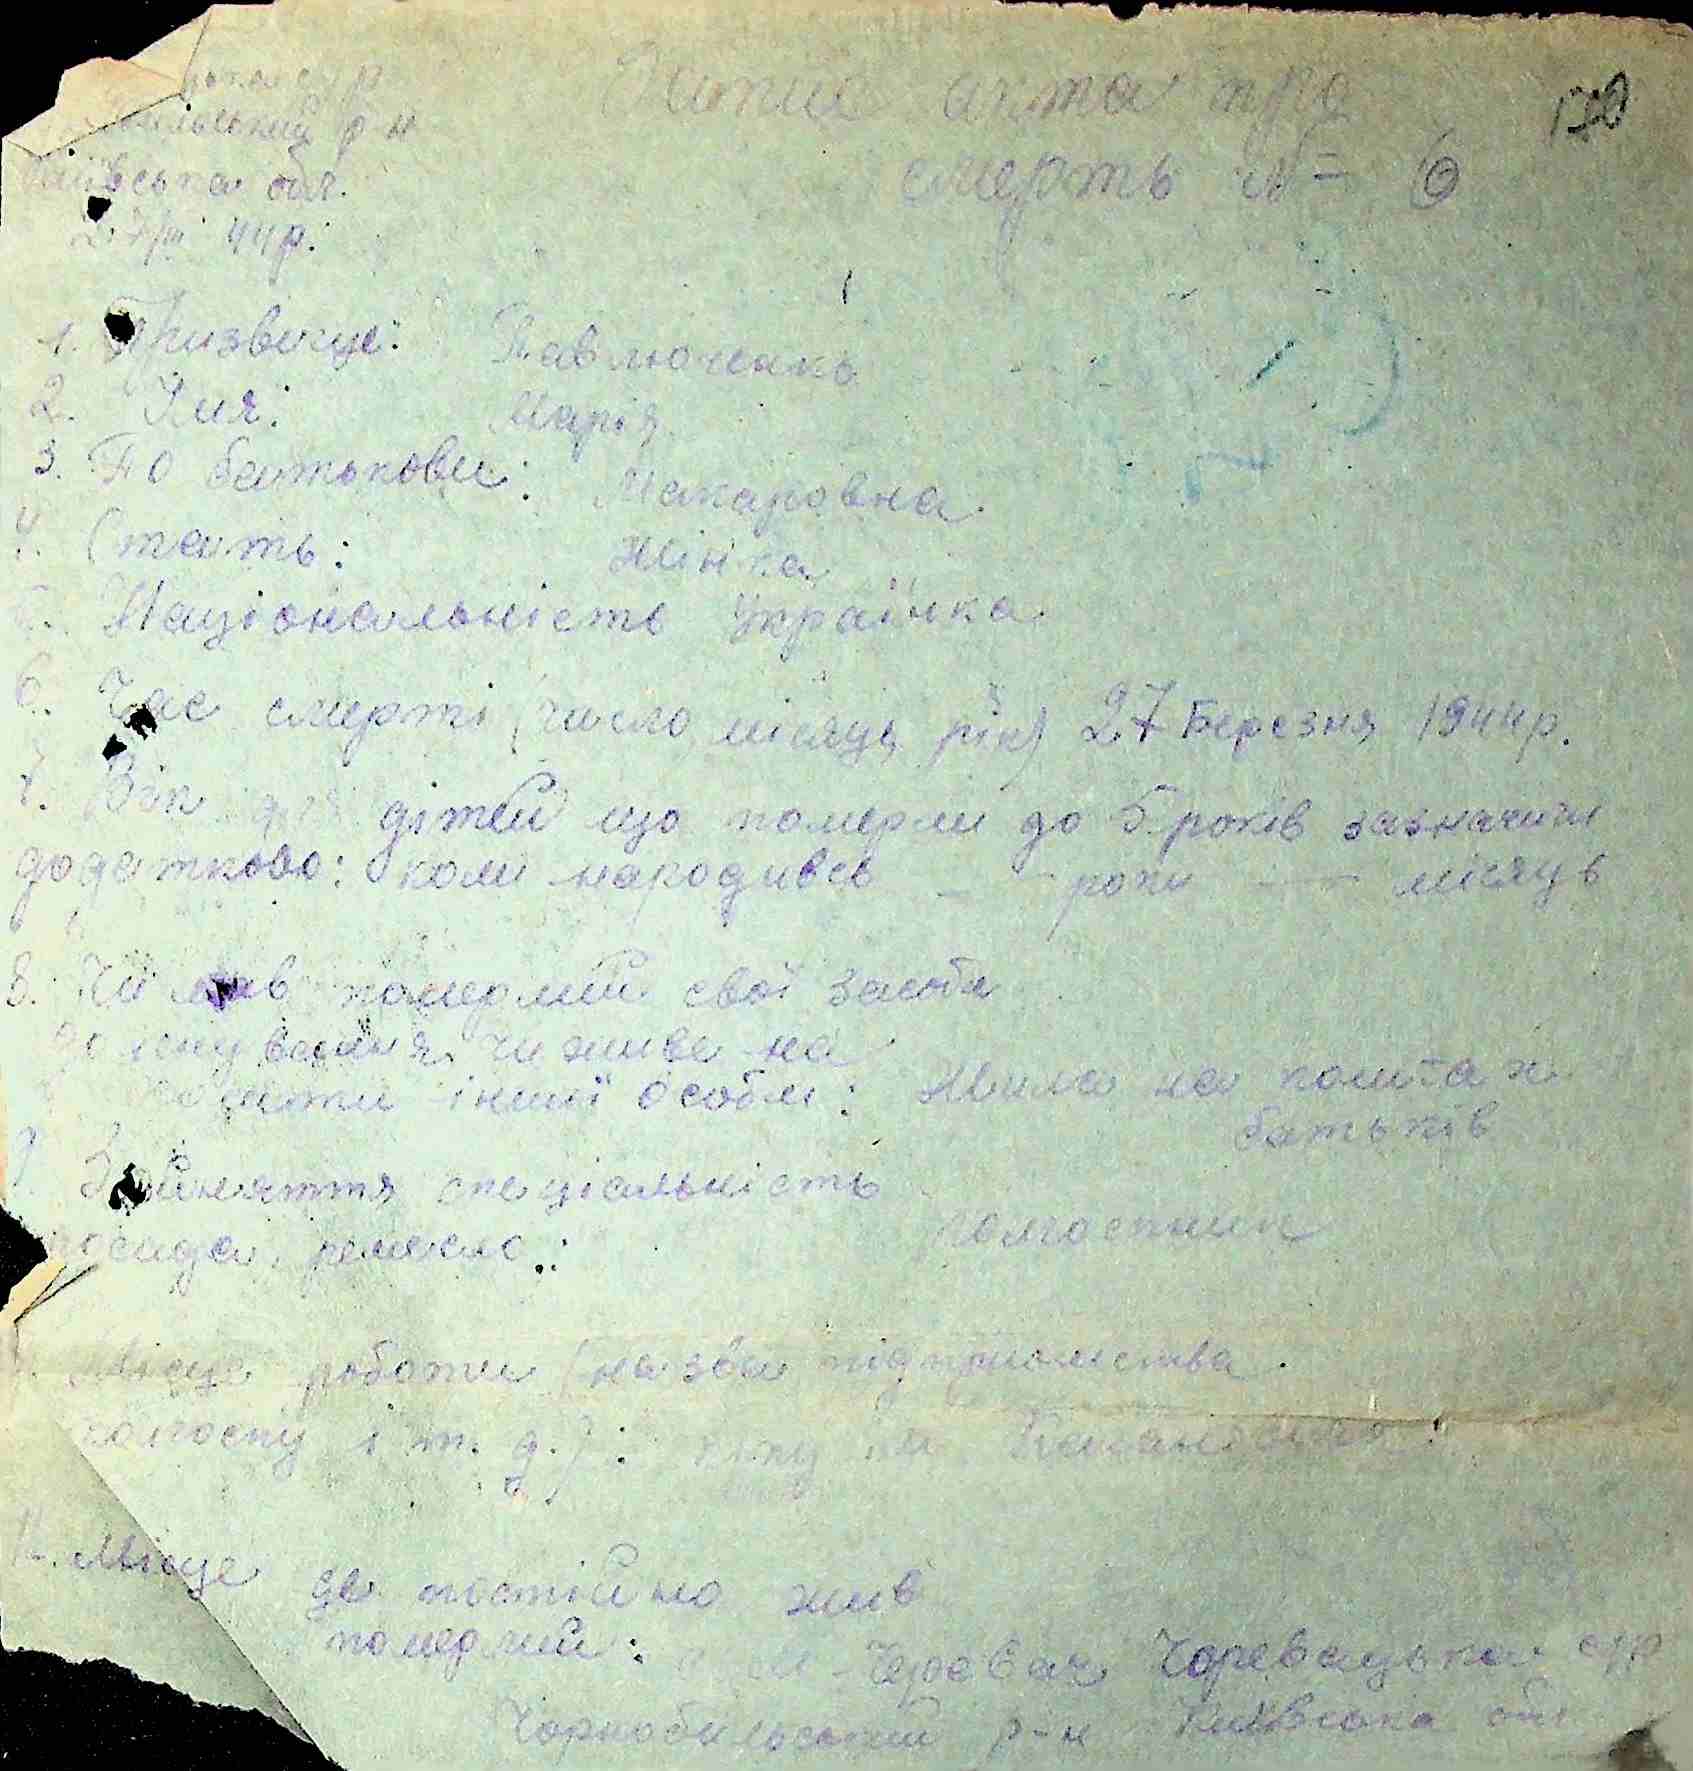 Запис акта про
130
р-н
Київська обл.
27/III 44р.
смерть № 6
1. Призвище: Павлюченко
2. Имя: Марія
3. По батькови: Макаровна
4. Стать: Жінка
5. Національність Українка
6. Час смерті (число, місяць, рік) 27 Березня 1944р.
7. Вік для дітей що померли до 5 років зазначити
додатково: коли народивсь — роки — місяць
8. Чи мав померлий свої засоби
до існування чи живе на
кошти іншої особи: Жила на коштах
батьків
9. Зайняття спеціальність
посада, ремесло: колгоспник
Місце роботи (назва підприємства
колгоспу і т. д.): ім
12. Місце де постійно жив
померлий: Черевач Черевацька с/р
Чорнобильський р-н Київська обл